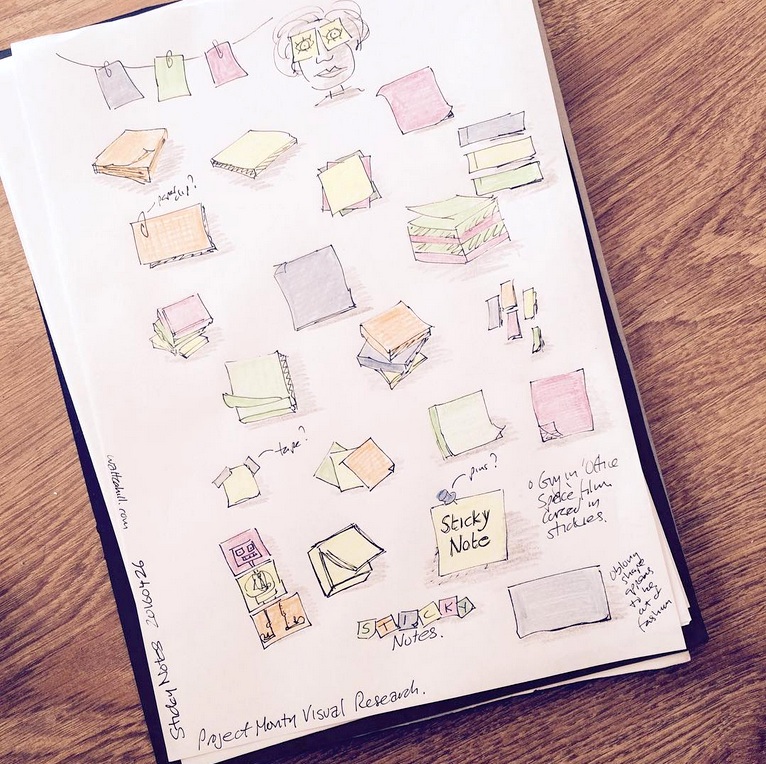 paper clip?
tape?
pins?
Sticky
Note
Guy in 'Office
Space' film
Covered in
stickies.
Oblong
shape
appears
to be
out of
fashion
S T I C K Y
Notes.
Sticky Notes 20160426
Project Monty Visual Research.